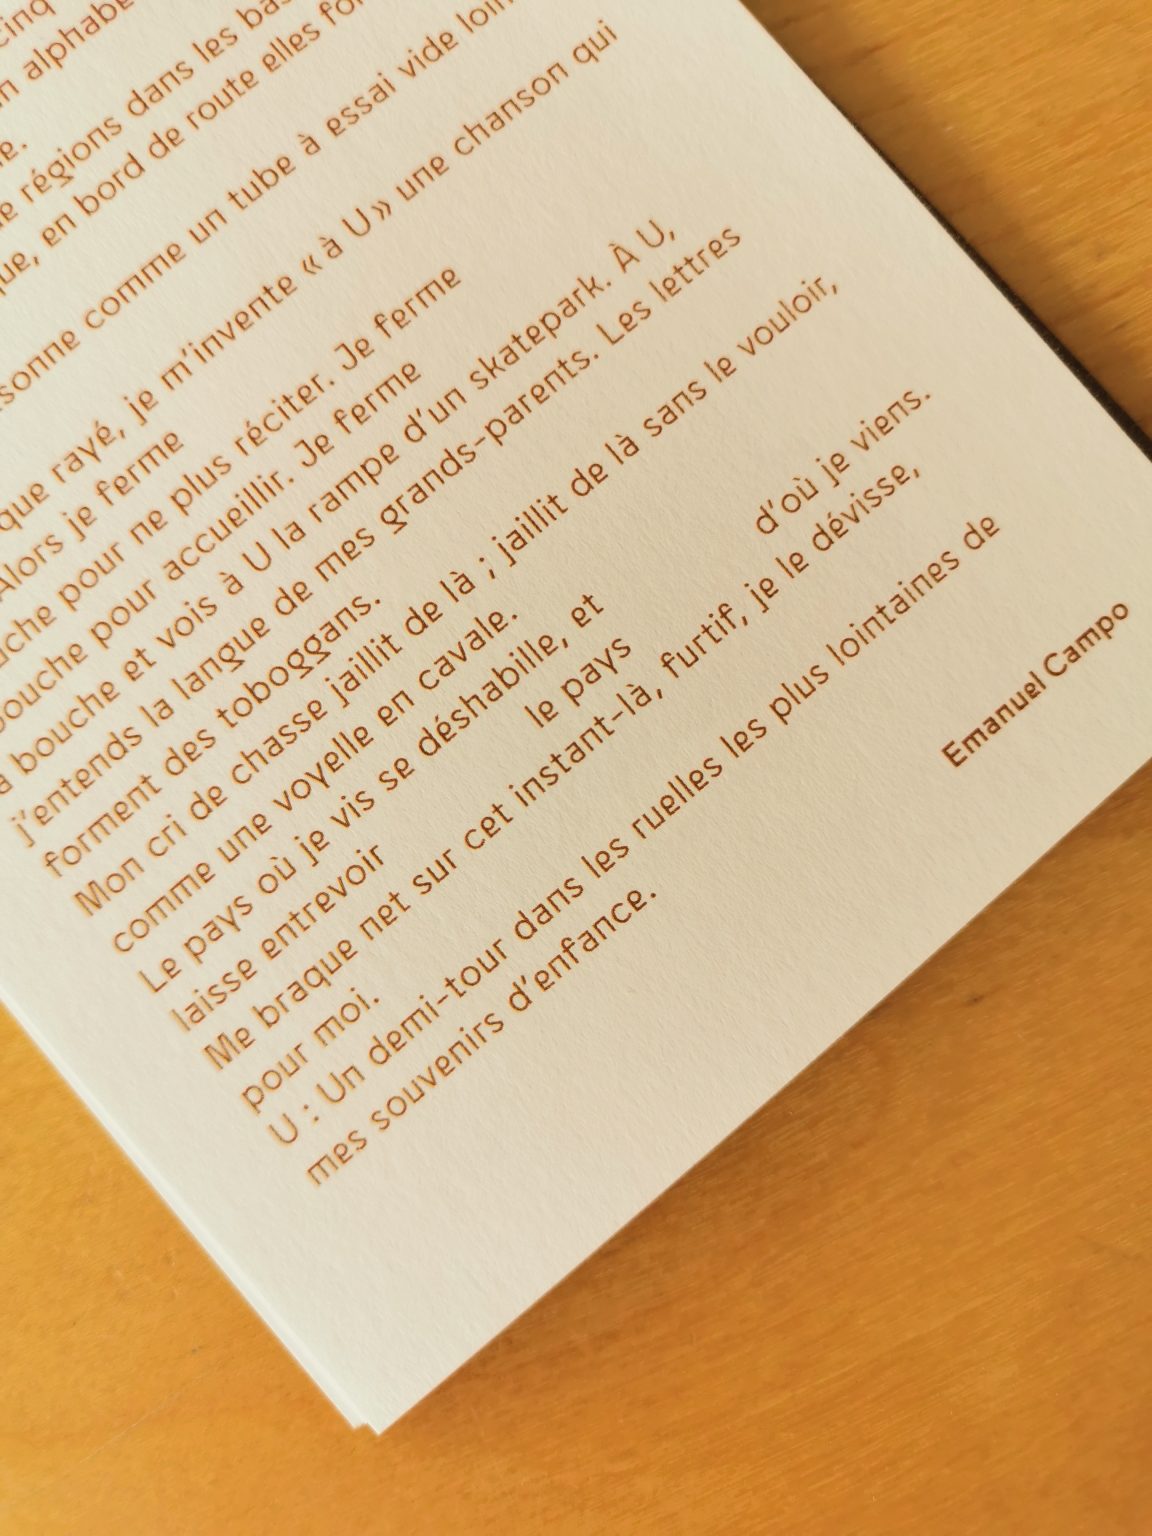 cinq
un alphabe
régions dans les bas
que, en bord de route elles for
sonne comme un tube à essai vide loin
que rayé, je m'invente « à U » une chanson qui
Alors je ferme
pour ne plus réciter. Je ferme
bouche pour accueillir. Je ferme
a bouche et vois à U la rampe d'un skatepark. À U,
j'entends la langue de mes grands-parents. Les lettres
forment des toboggans.
Mon cri de chasse jaillit de là ; jaillit de là sans le vouloir,
comme une voyelle en cavale.
Le pays où je vis se déshabille, et
laisse entrevoir le pays d'où je viens.
Me braque net sur cet instant-là, furtif, je le dévisse,
pour moi.
U : Un demi-tour dans les ruelles les plus lointaines de
mes souvenirs d'enfance.
Emanuel Campo